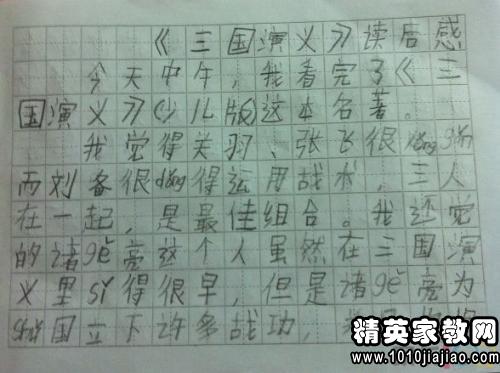 《三国演义》读后感
今天中午，我看完了《三
国演义》(少儿版)这本名著。
我觉得关羽、张飞很yǒng gǎn
而刘备很dǒng得运用战术，三人
在一起，是最佳组合。我还觉
的诸gě亮这个人虽然在三国演
义里sǐ得很早，但是诸gě亮为
shǔ国立下许多战功，
精英家教网
www.1010jiajiao.com